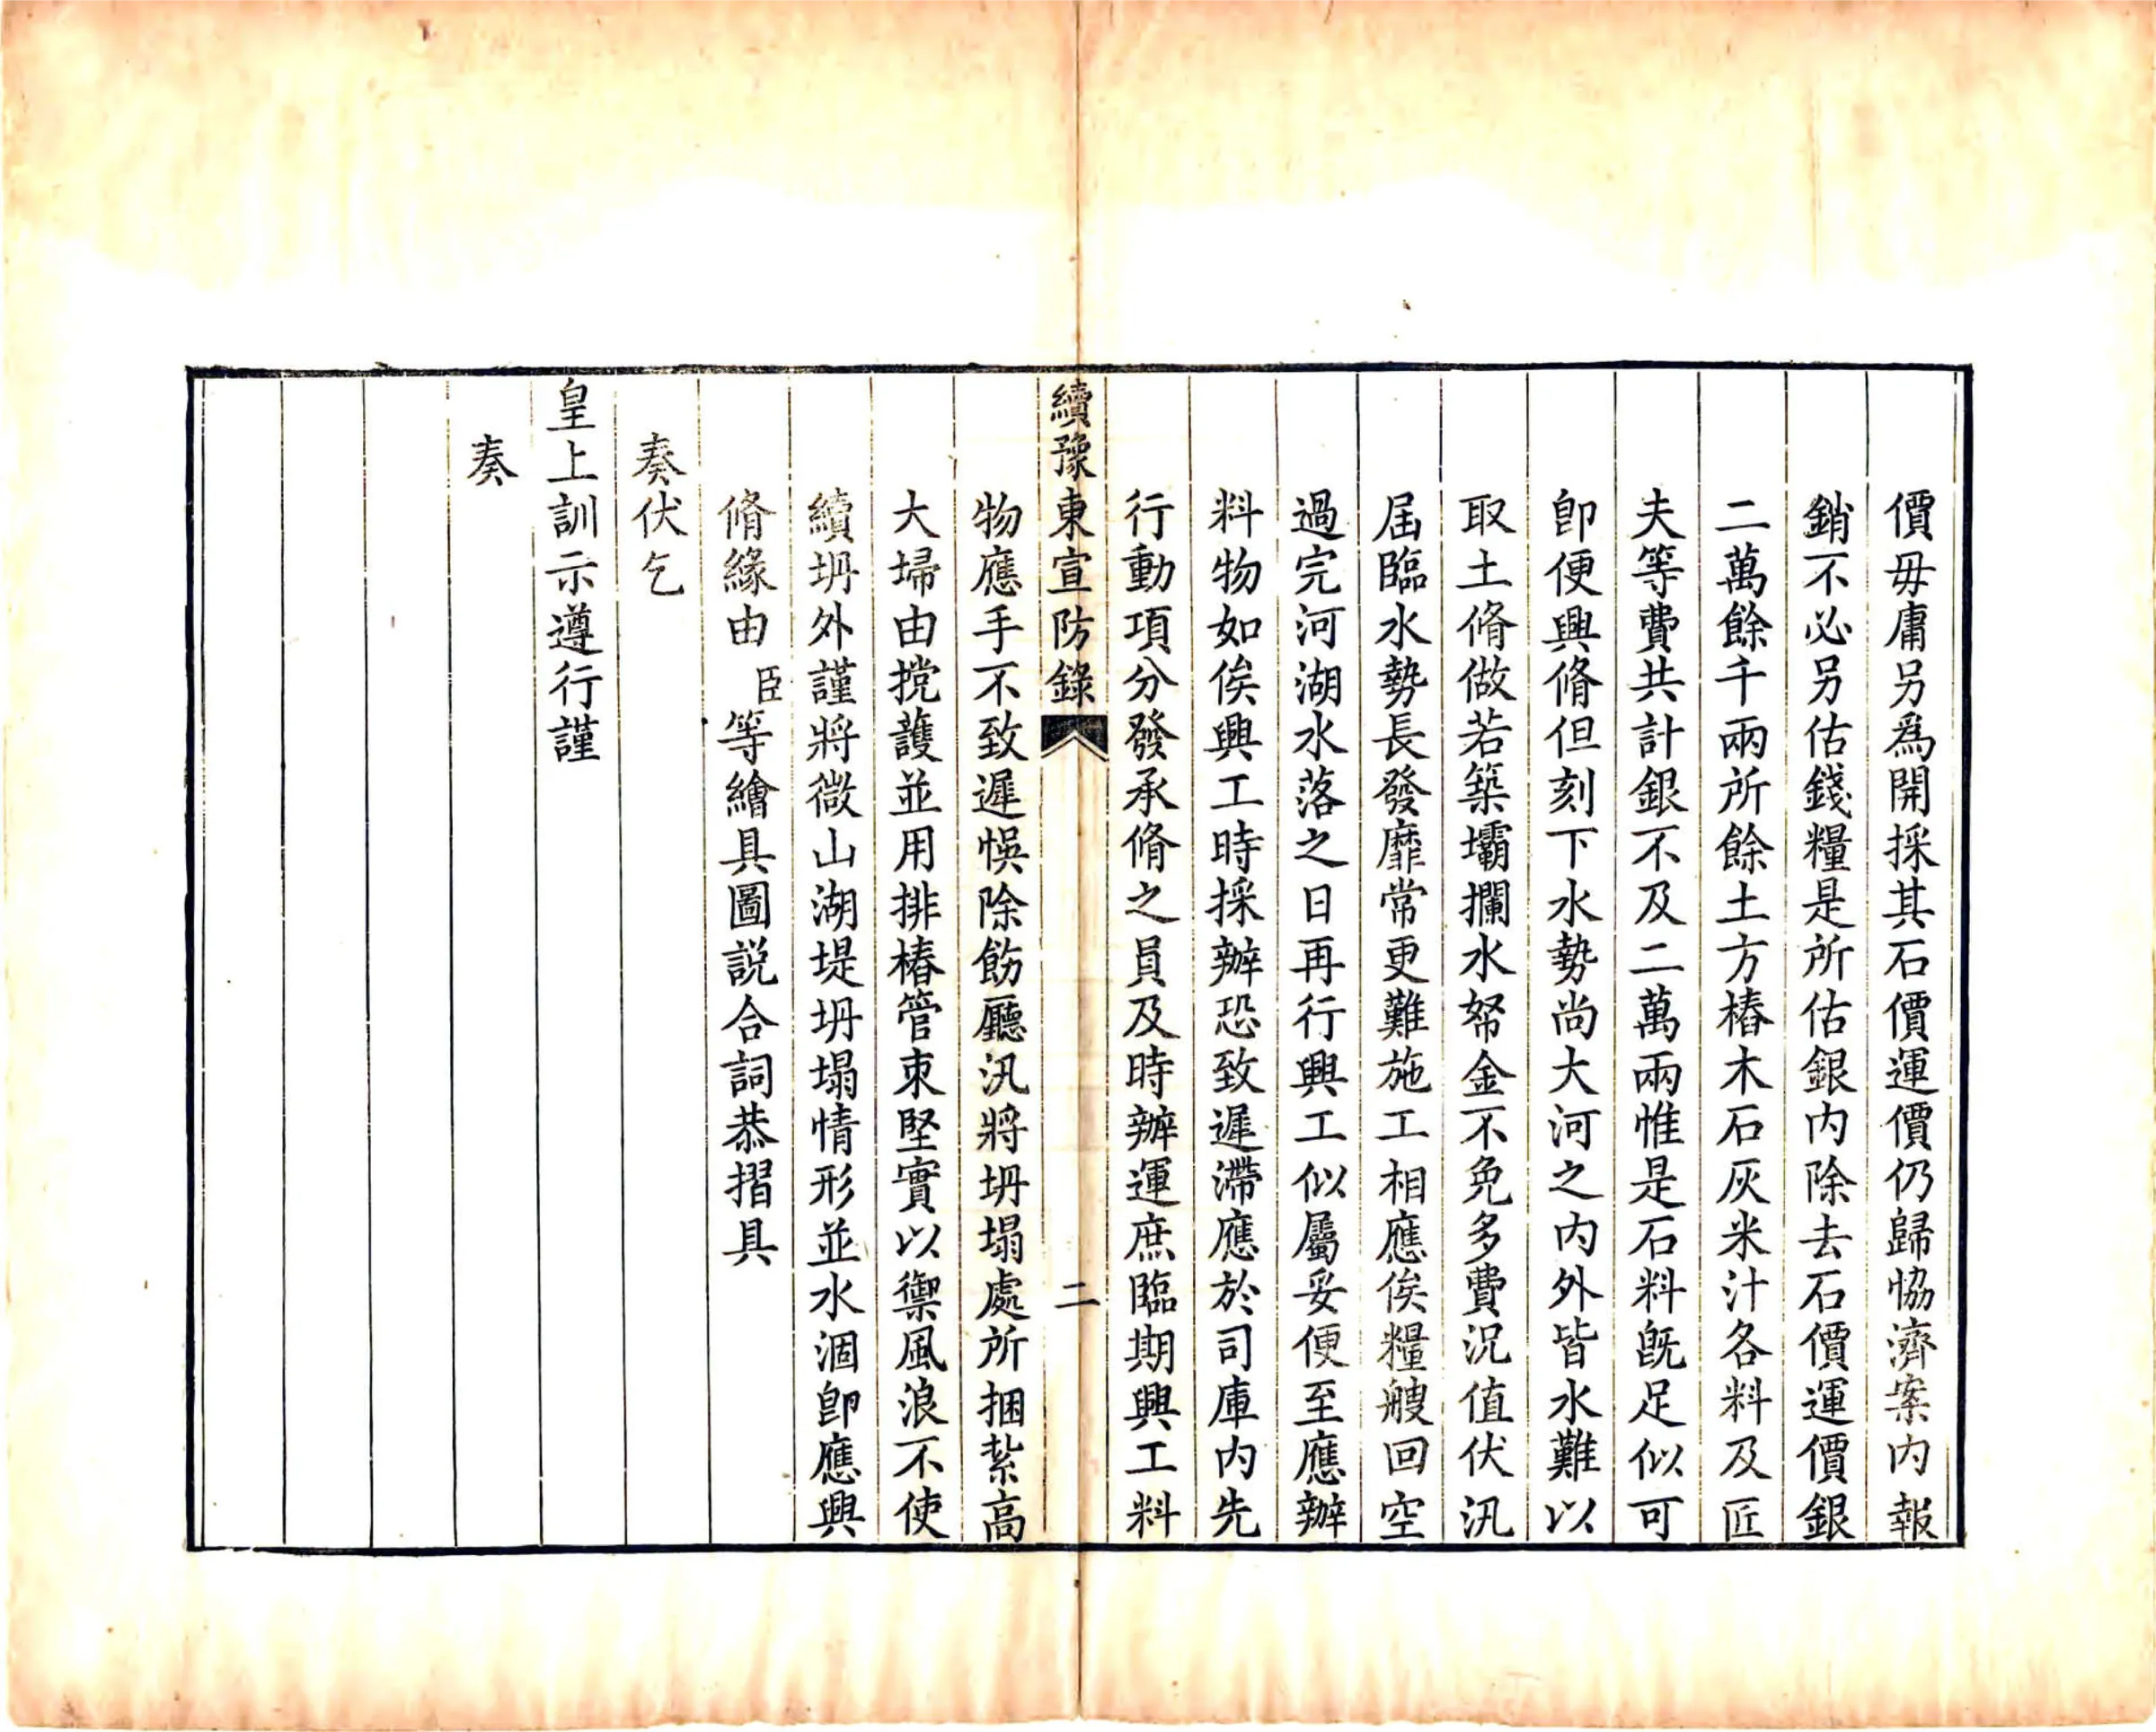 價毋庸另爲開採其石價運價仍歸恊濟案内報
銷不必另估錢糧是所估銀内除去石價運價銀
二萬餘千兩所餘土方樁木石灰米汁各料及匠
夫等費共計銀不及二萬兩惟是石料旣足似可
卽便興脩但刻下水勢尚大河之内外皆水難以
取土脩做若築壩攔水帑金不免多費況值伏汛
屆臨水勢長發靡常更難施工相應俟糧艘回空
過完河湖水落之日再行興工似屬妥便至應辦
料物如俟興工時採辦恐致遲滯應於司庫内先
行動項分發承脩之員及時辦運庶臨期興工料
續豫東宣防錄
二
物應手不致遲悞除飭廳汛將坍塌處所捆紮高
大埽由攩護並用排樁管束堅實以禦風浪不使
續坍外謹將微山湖堤坍塌情形並水涸卽應興
脩緣由臣等繪具圖説合詞恭摺具
奏伏乞
皇上訓示遵行謹
奏